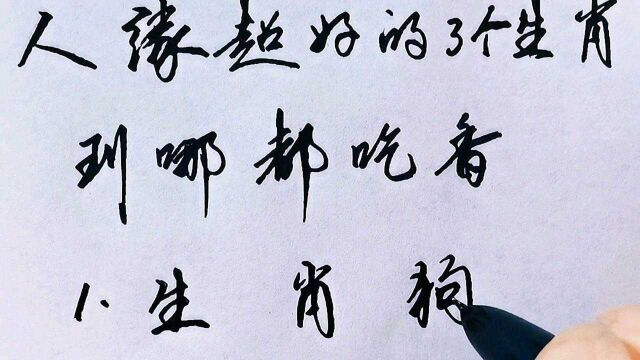 人缘超好的3个生肖
到哪都吃香
1.生肖狗